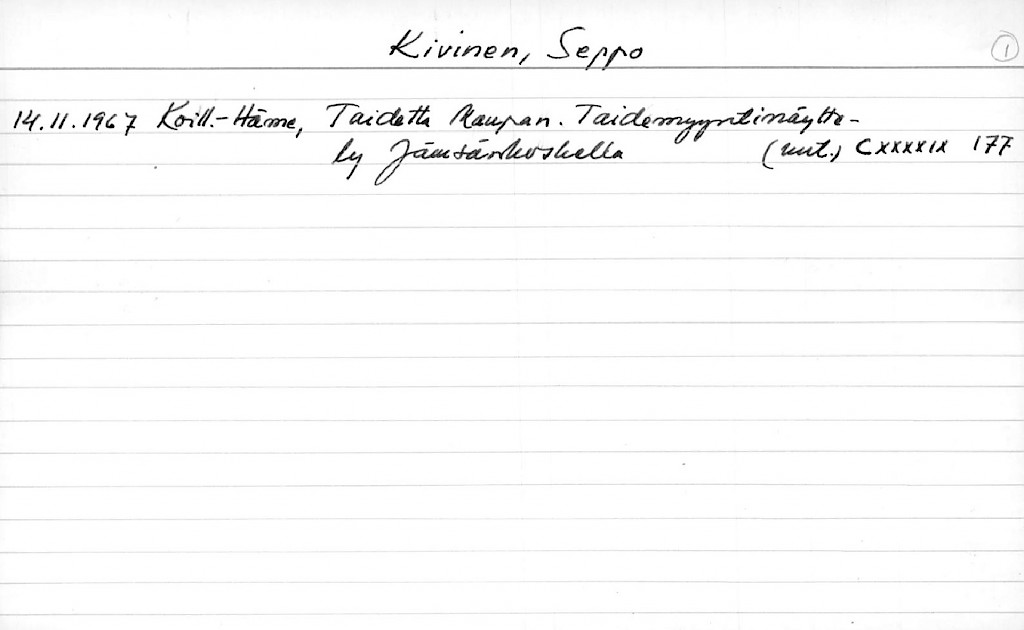 Kivinen, Seppo
1
14.11.1967 Koill.-Häme, Taidetta kaupan. Taidemyyntinäytte-
ly Jämsänkoskella (mut.) CXXXXIX 177